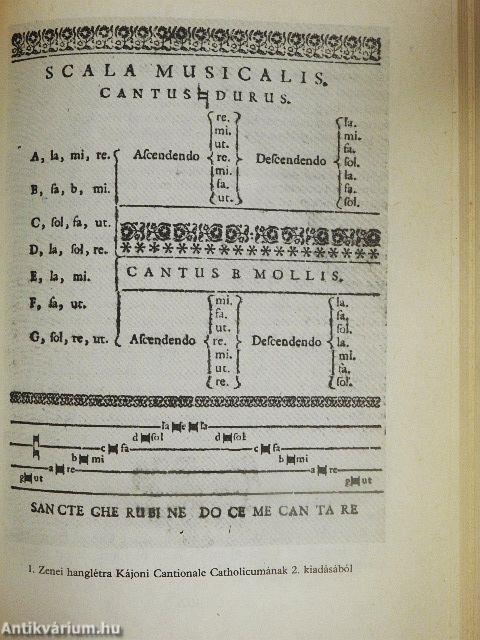 SCALA MUSICALIS.
CANTUS ♮ DURUS.
A, la, mi, re.
B, fa, b, mi.
C, ſol, fa, ut.
D, la, ſol, re.
E, la, mi.
F, fa, ut.
G, ſol, re, ut.
Aſcendendo
re.
mi.
ut.
re.
mi.
fa.
ut.
Deſcendendo
la.
mi.
fa.
ſol.
la.
fa.
ſol.
CANTUS B MOLLIS.
Aſcendendo
mi.
fa.
ut.
re.
mi.
ut.
re.
Deſcendendo
la.
fa.
ſol.
la.
mi.
fa.
ſol.
la e la
d ſol d ſol
c fa c fa
b mi b mi
a re a re
g ut g ut
SANCTE CHE RUBI NE DO CE ME CAN TA RE
1. Zenei hanglétra Kájoni Cantionale Catholicumának 2. kiadásából
Antikvárium.hu